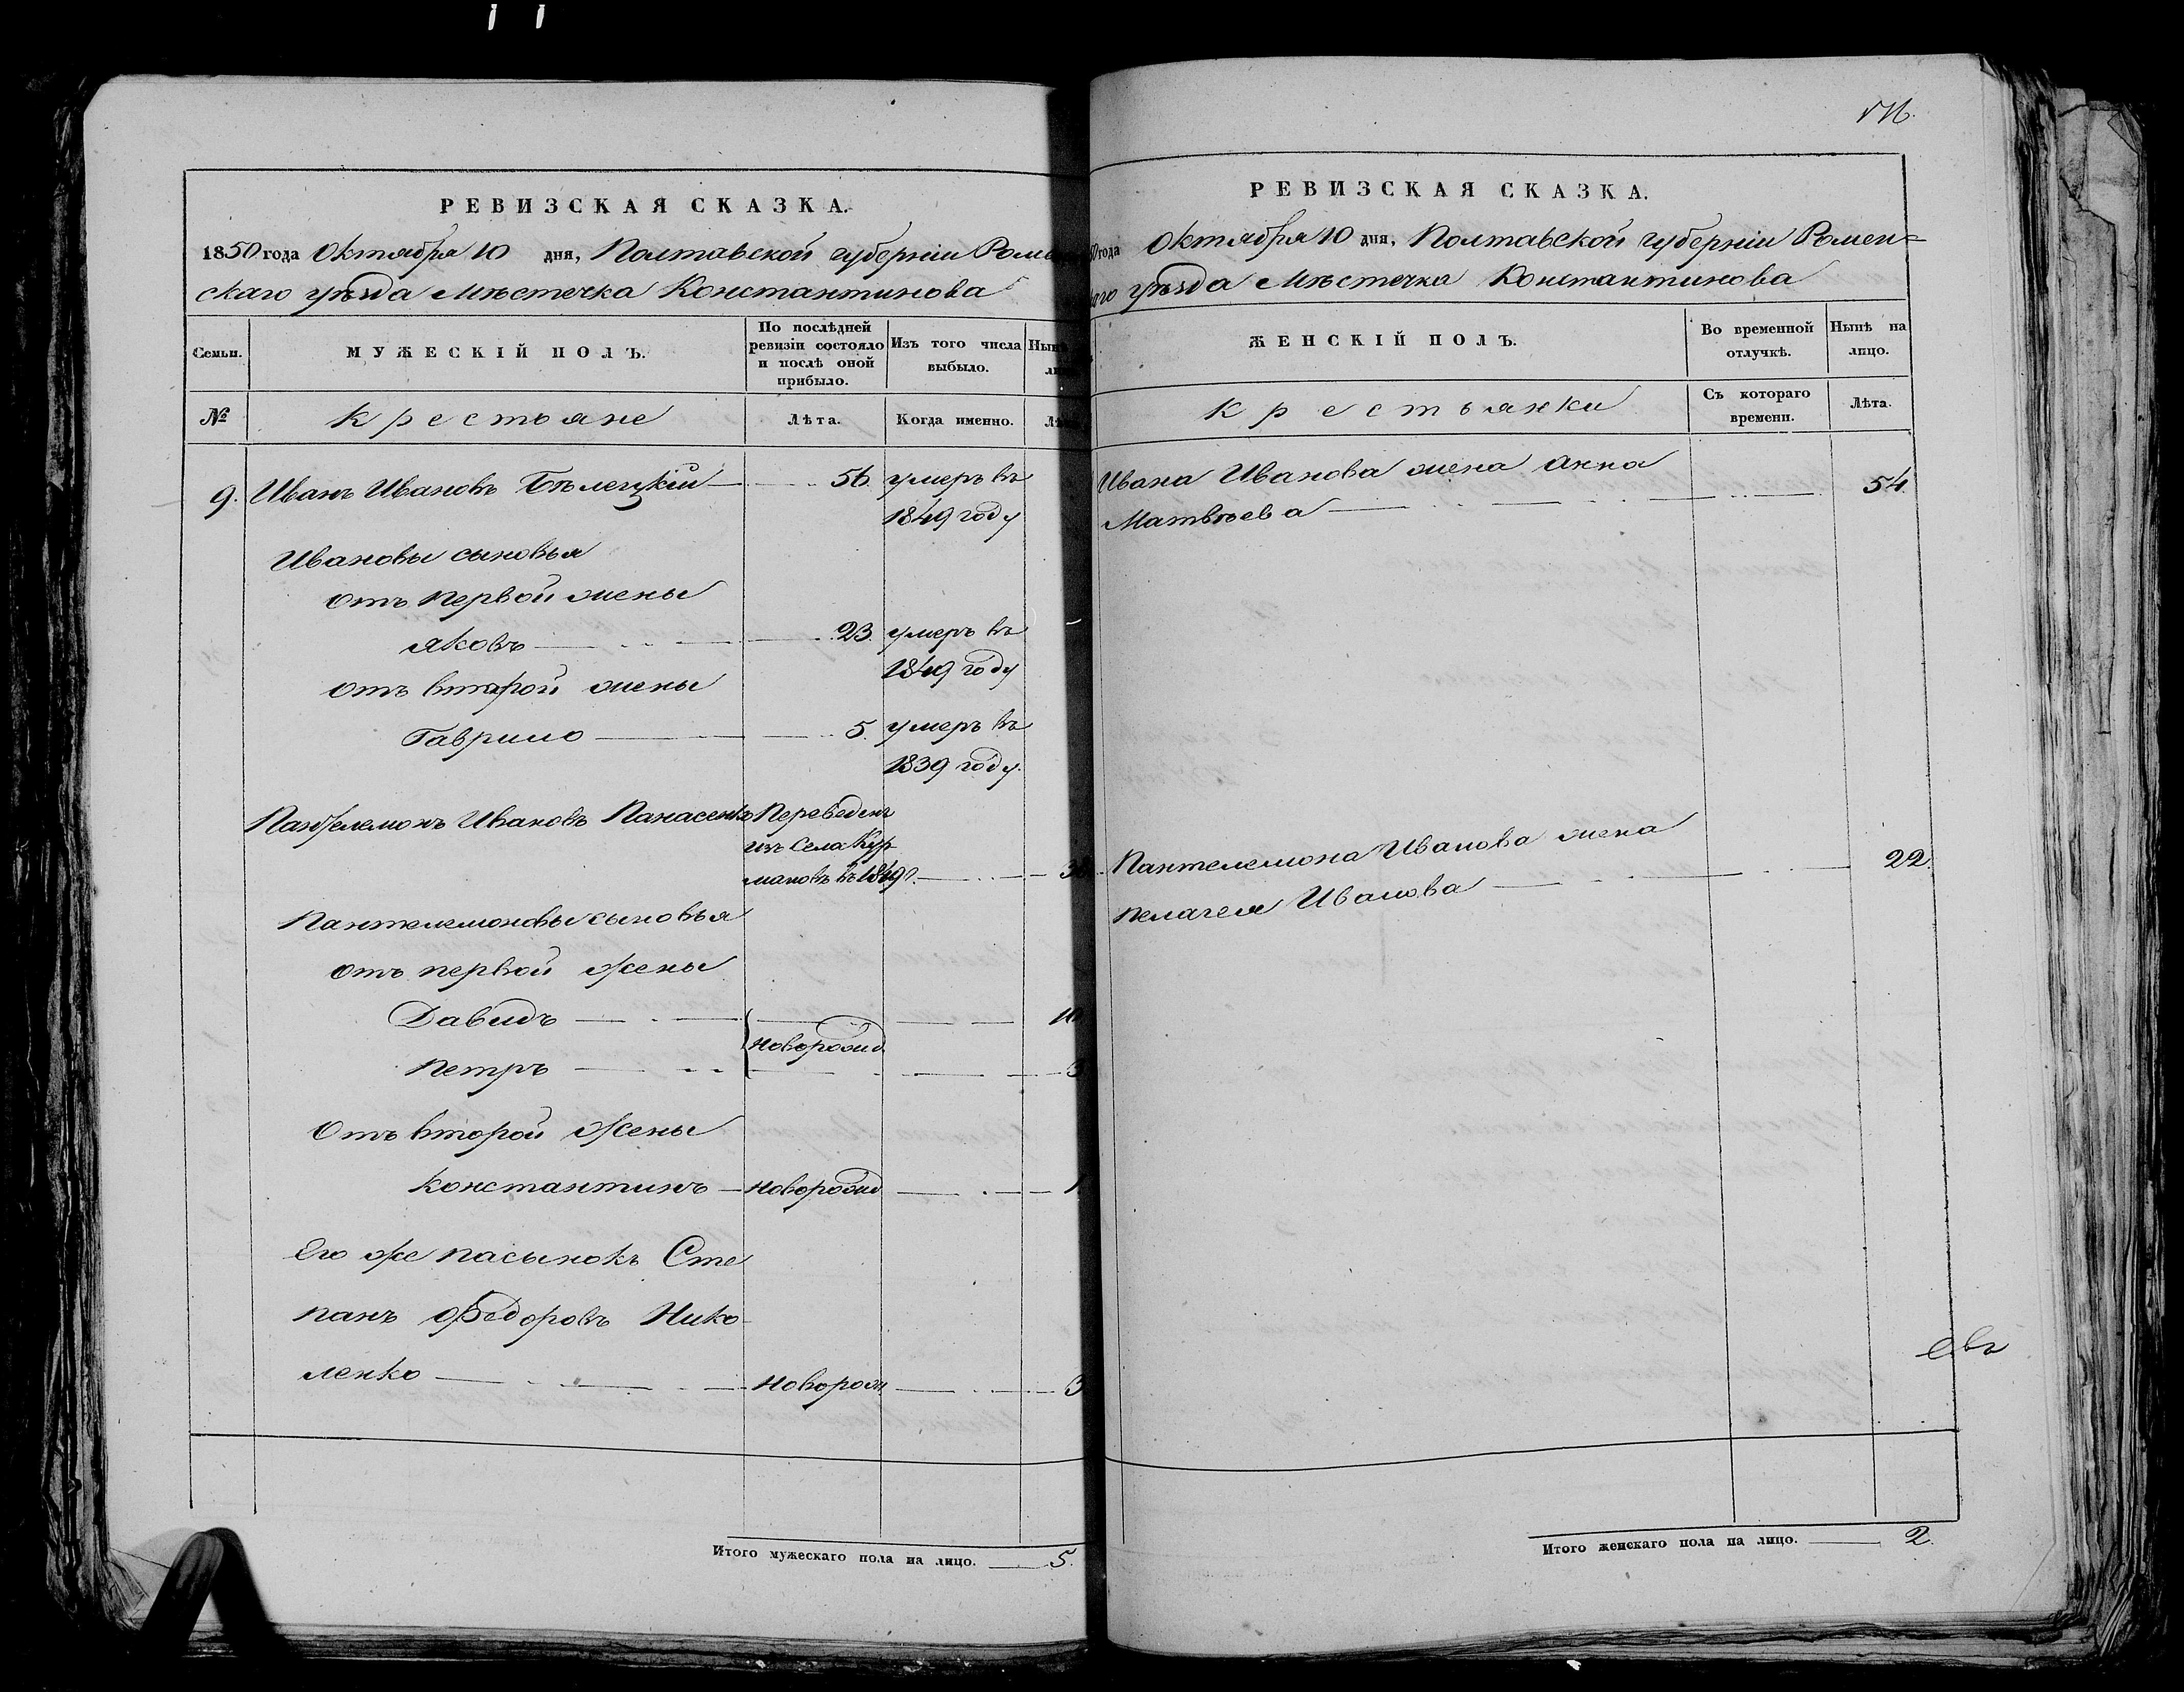 РЕВИЗСКАЯ СКАЗКА.
1850 года Октября 10 дня, Полтавской губерніи Роме
скаго уѣзда Мѣстечка Константинова
Семьи.
МУЖЕСКІЙ ПОЛЪ.
По послѣдней ревизіи состояло и послѣ оной прибыло.
Изъ того числа выбыло.
№
Крестьяне
Лѣта.
Когда именно.
9. Иванъ Ивановъ Бѣлецкій 56 умеръ въ
1849 году
Ивановы сыновья
отъ первой жены
Яковъ 23. умеръ въ
1849 году
отъ второй жены
Гаврило 5. умеръ въ
1839 году.
Пантелемонъ Ивановъ Панасенко Переведенъ
изъ села Кур
мановъ въ 1849
Пантелемоновы сыновья
отъ первой жены
Давидъ
Новорожд
Петръ 3
Отъ второй жены
Константинъ Новорожд 1
Его же пасынокъ Сте
панъ Федоровъ Нико
ленко Новорож 3
Итого мужескаго пола на лицо. 5.
РЕВИЗСКАЯ СКАЗКА.
года Октября 10 дня, Полтавской губерніи Ромен=
аго уѣзда Мѣстечка Константинова
ЖЕНСКІЙ ПОЛЪ.
Во временной отлучкѣ.
Нынѣ на лицо.
Крестьянки
Съ котораго времени.
Лѣта.
Ивана Иванова жена Анна
Матвѣева 54.
Пантелемона Иванова жена
Пелагея Иванова 22.
Итого женскаго пола на лицо. 2.